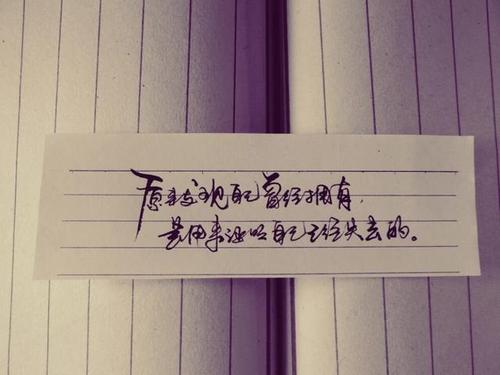 原来发现自己曾经拥有,
是用来证明自己已经失去的。